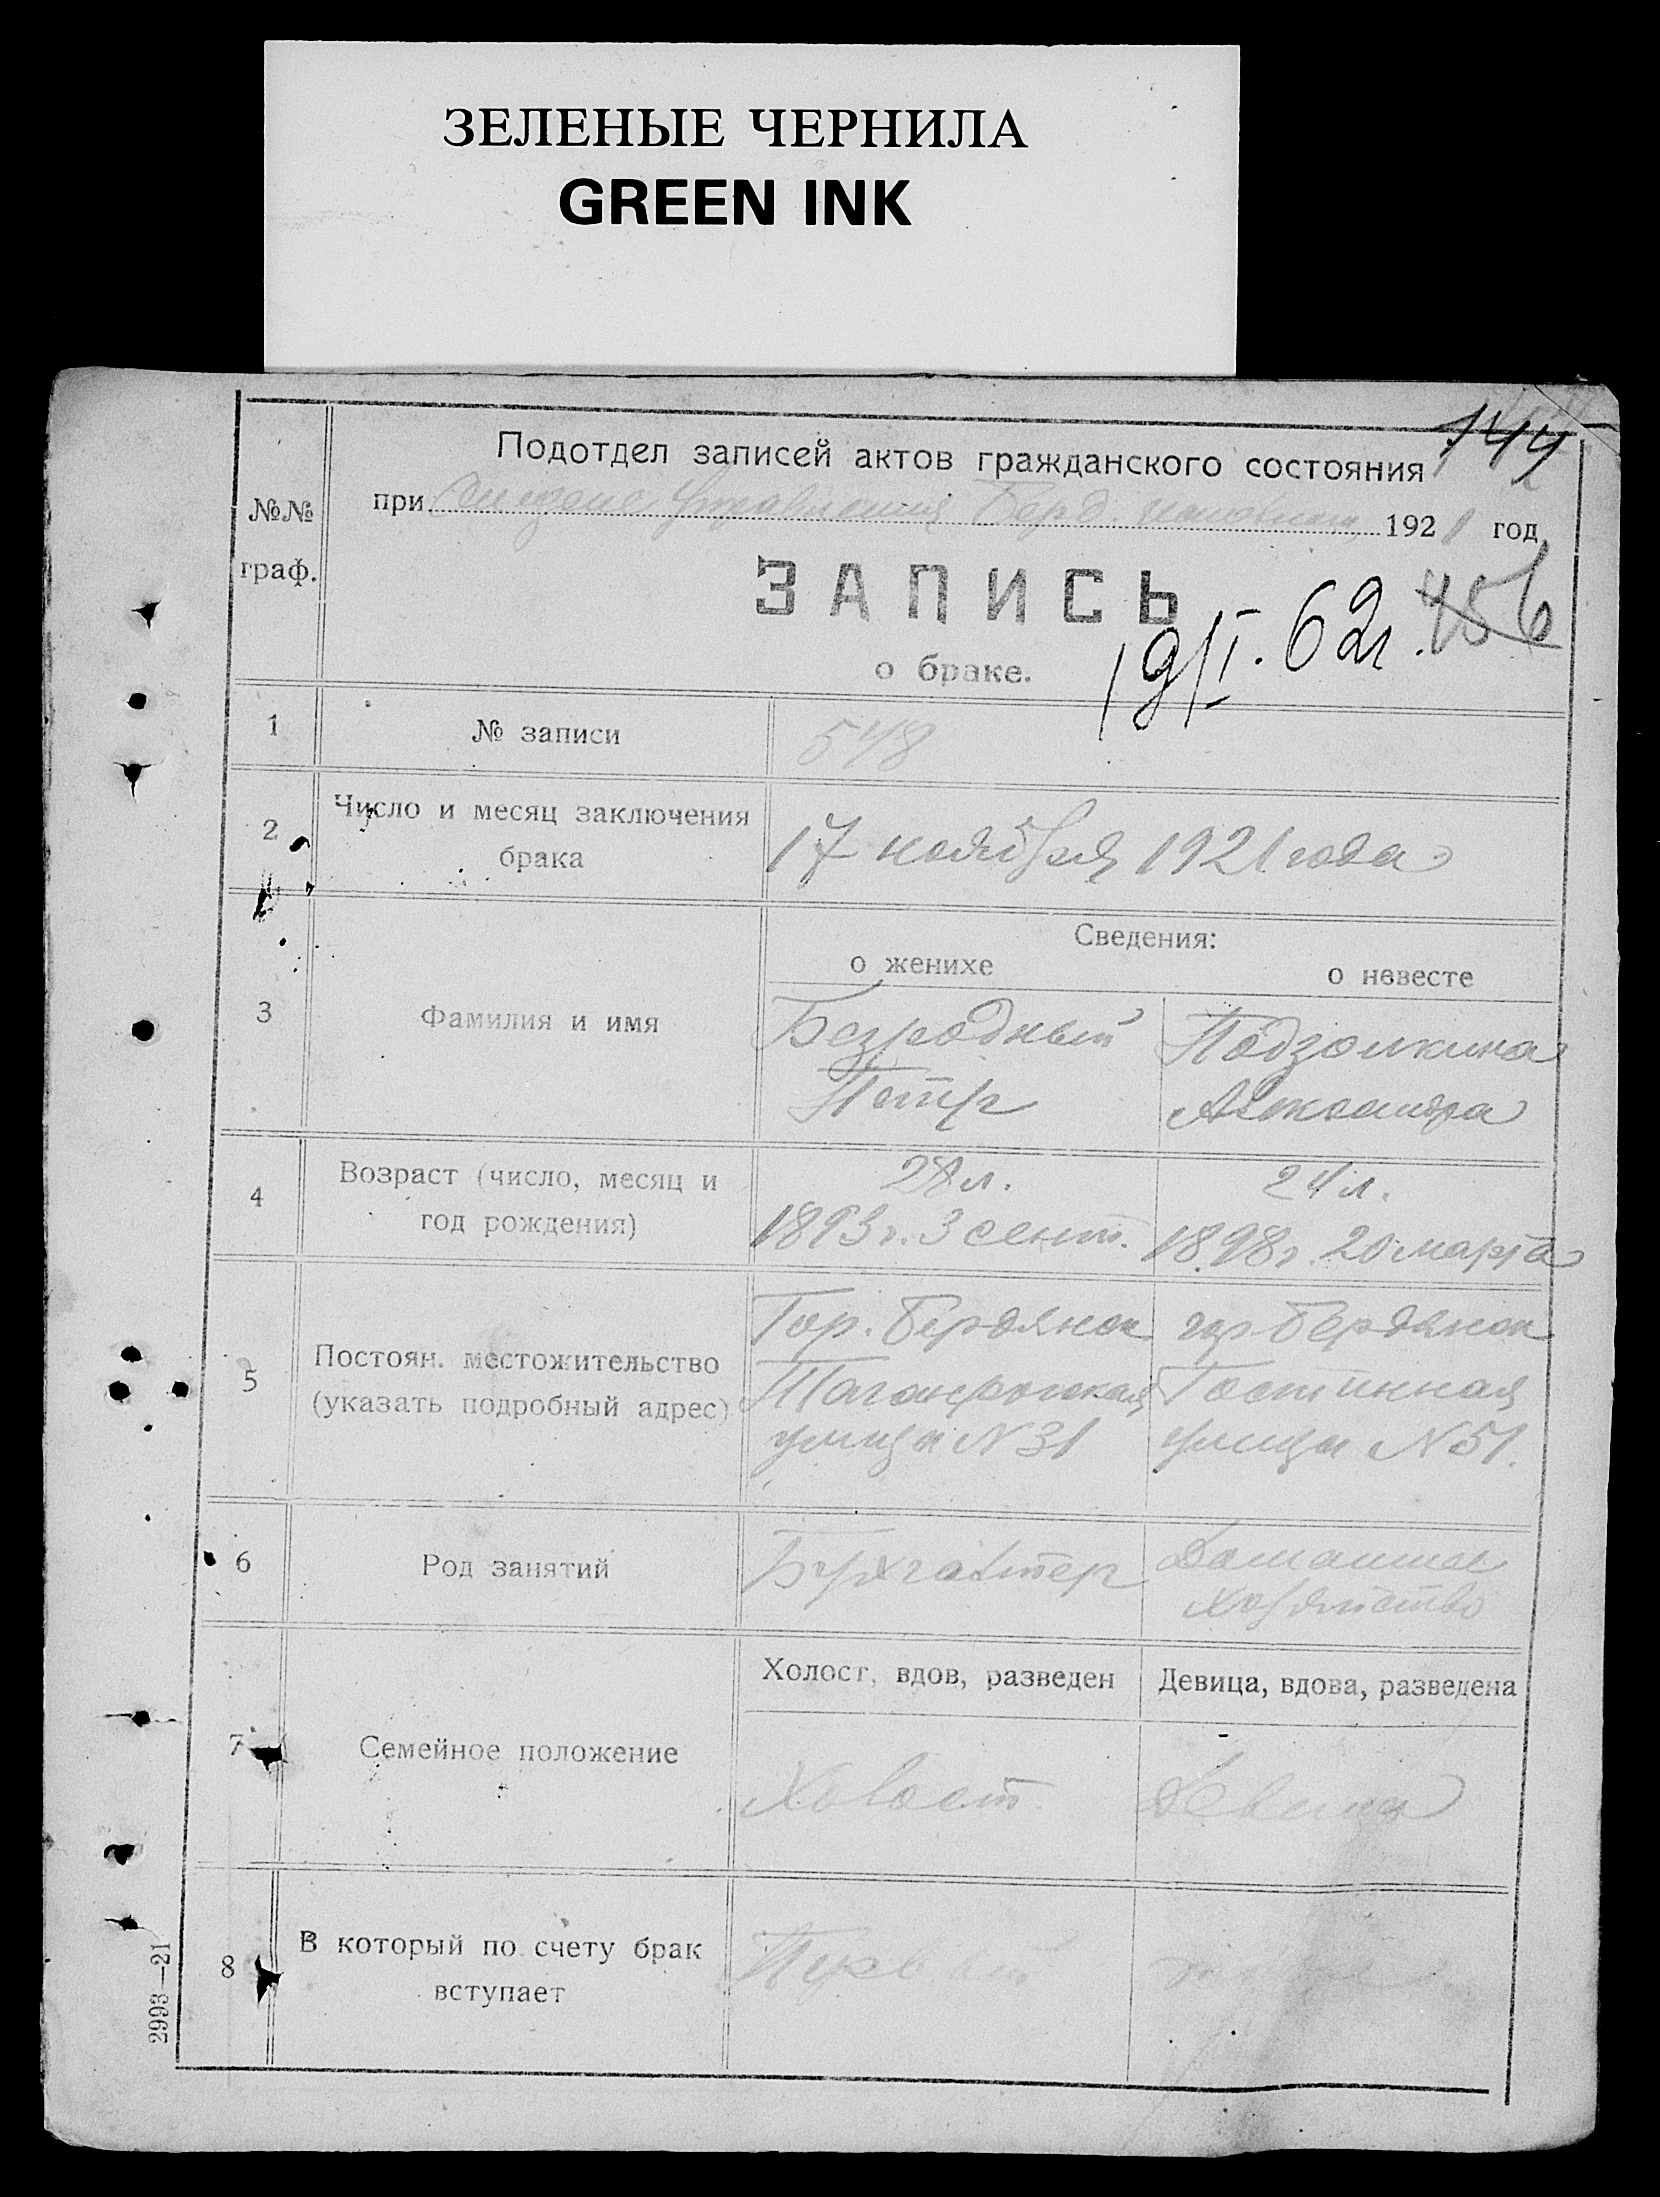 ЗЕЛЕНЫЕ ЧЕРНИЛА
GREEN INK
144
Подотдел записей актов гражданского состояния
№№ граф.
при Управления Берд. 1921 год
ЗАПИСЬ
о браке.
19/I. 62г.
456
1 № записи 548
2 Число и месяц заключения брака 17 ноября 1921 года
Сведения:
о женихе о невесте
3 Фамилия и имя Безродный Подзолкина
Петр Александра
4 Возраст (число, месяц и 28 л. 24 л.
год рождения) 1893 г. 3 сент. 1898 г. 20 марта
Гор. Бердянск гор. Бердянск
5 Постоян. местожительство Таганрогская Гостинная
(указать подробный адрес) улица N 31 улица N 51.
6 Род занятий Бухгалтер Домашнее
хозяйство
Холост, вдов, разведен Девица, вдова, разведена
7 Семейное положение Холост Девица
8 В который по счету брак Первый
вступает
2993—21